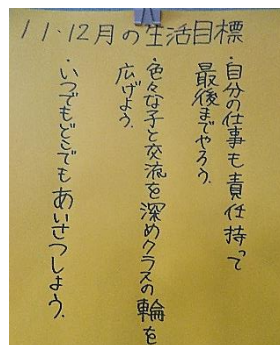 11・12月の生活目標
・自分の仕事も責任持って
最後までやろう.
・色々な子と交流を深めクラスの輪を
広げよう.
・いつでもどこでもあいさつしよう.